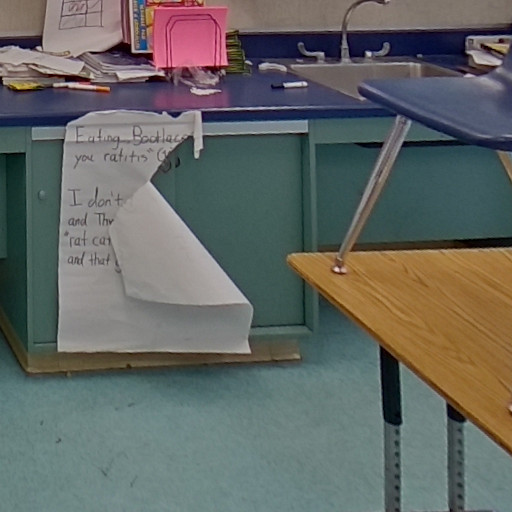 Eating Bootlace
you ratitis"
I don't
and Thr
"rat cat
and that